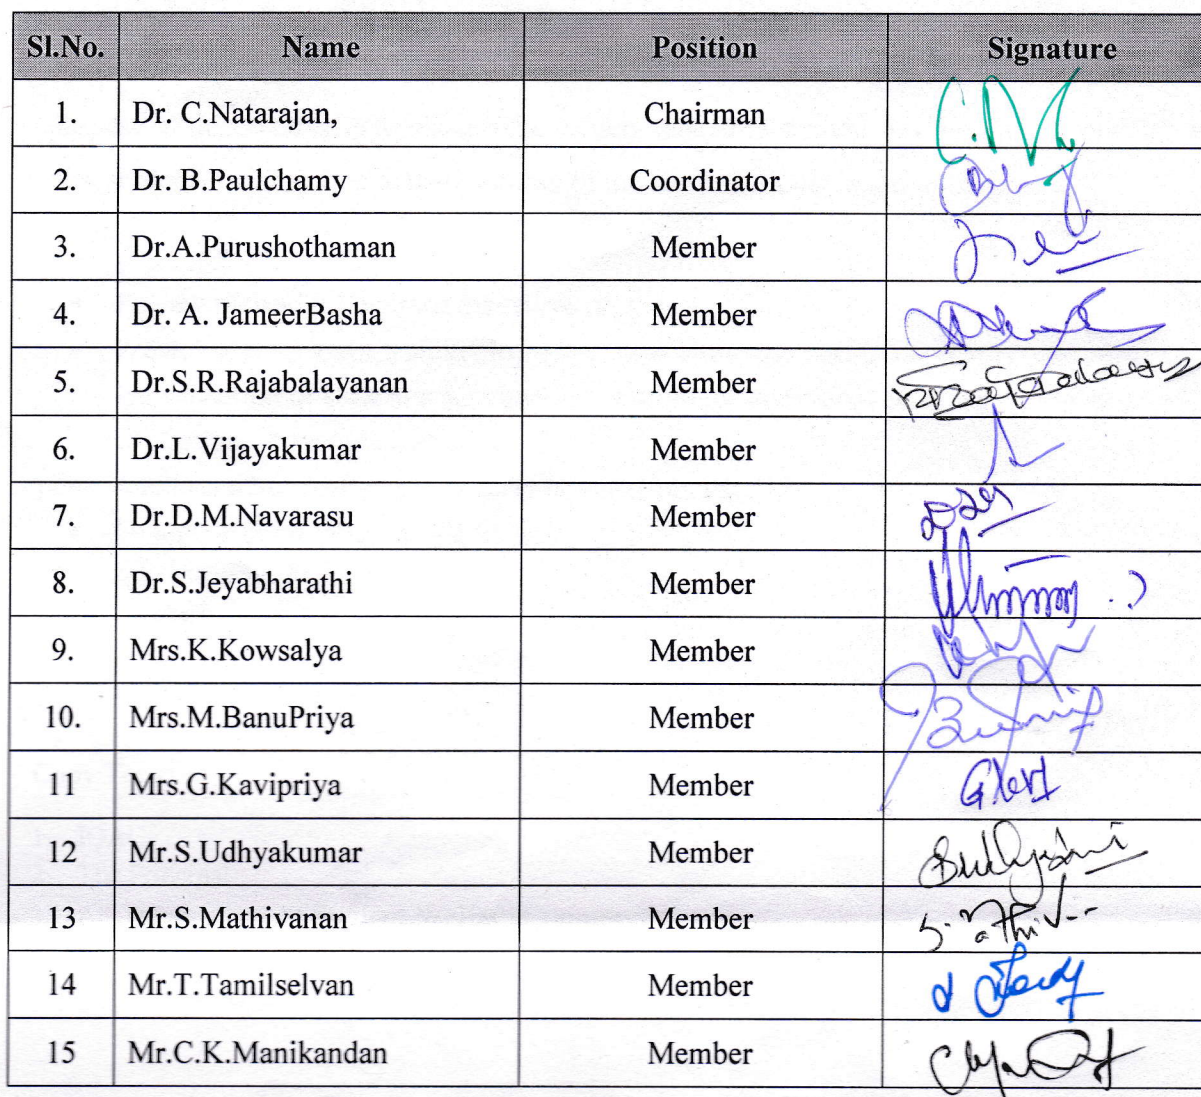 Sl.No. Name Position Signature
1. Dr. C.Natarajan, Chairman
2. Dr. B.Paulchamy Coordinator
3. Dr.A.Purushothaman Member
4. Dr. A. JameerBasha Member
5. Dr.S.R.Rajabalayanan Member
6. Dr.L.Vijayakumar Member
7. Dr.D.M.Navarasu Member
8. Dr.S.Jeyabharathi Member
9. Mrs.K.Kowsalya Member
10. Mrs.M.BanuPriya Member
11 Mrs.G.Kavipriya Member
12 Mr.S.Udhyakumar Member
13 Mr.S.Mathivanan Member
14 Mr.T.Tamilselvan Member
15 Mr.C.K.Manikandan Member